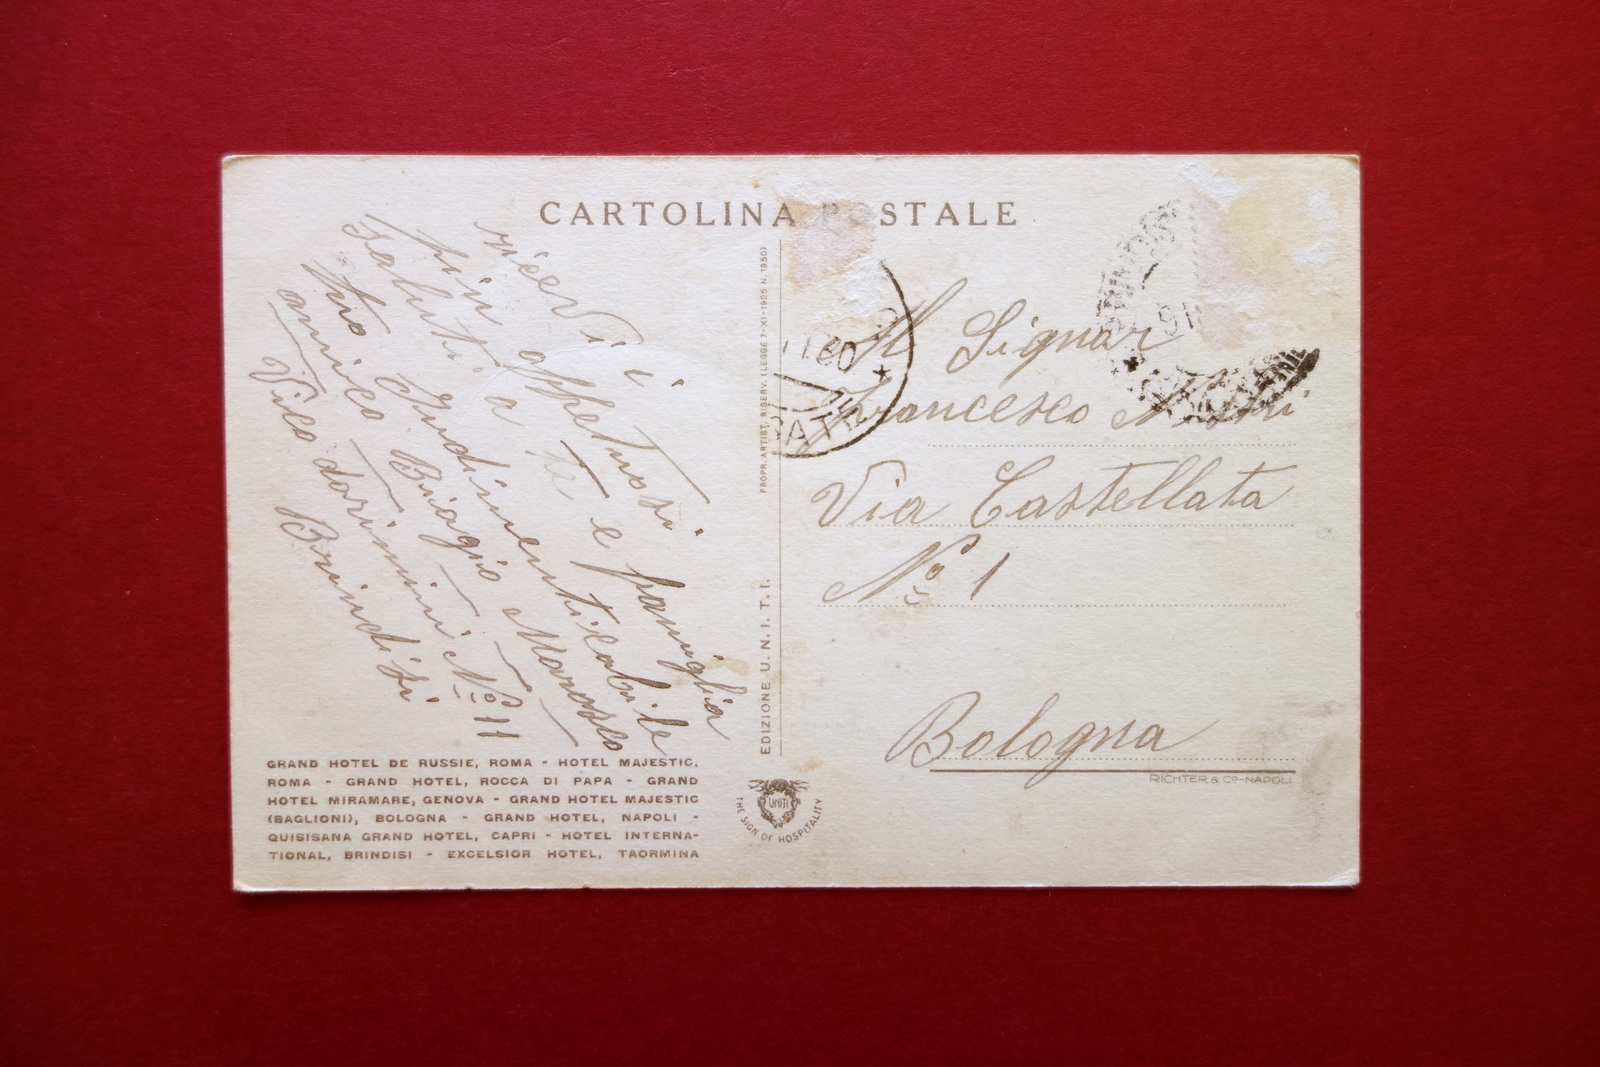 CARTOLINA POSTALE
ricevi i
più affettuosi
saluti a te e famiglia
tuo indimenticabile
amico Biagio
Vico dorimini No 11
Brindisi
PROPR. ARTIST. RISERV. (LEGGE 7-XI-1925 N. 1950)
EDIZIONE U. N. I. T. I.
Al Signor
Francesco
Via Castellata
No 1
Bologna
RICHTER & Co-NAPOLI
GRAND HOTEL DE RUSSIE, ROMA - HOTEL MAJESTIC,
ROMA - GRAND HOTEL, ROCCA DI PAPA - GRAND
HOTEL MIRAMARE, GENOVA - GRAND HOTEL MAJESTIC
(BAGLIONI), BOLOGNA - GRAND HOTEL, NAPOLI -
QUISISANA GRAND HOTEL, CAPRI - HOTEL INTERNA-
TIONAL, BRINDISI - EXCELSIOR HOTEL, TAORMINA
UNITI
THE SIGN OF HOSPITALITY